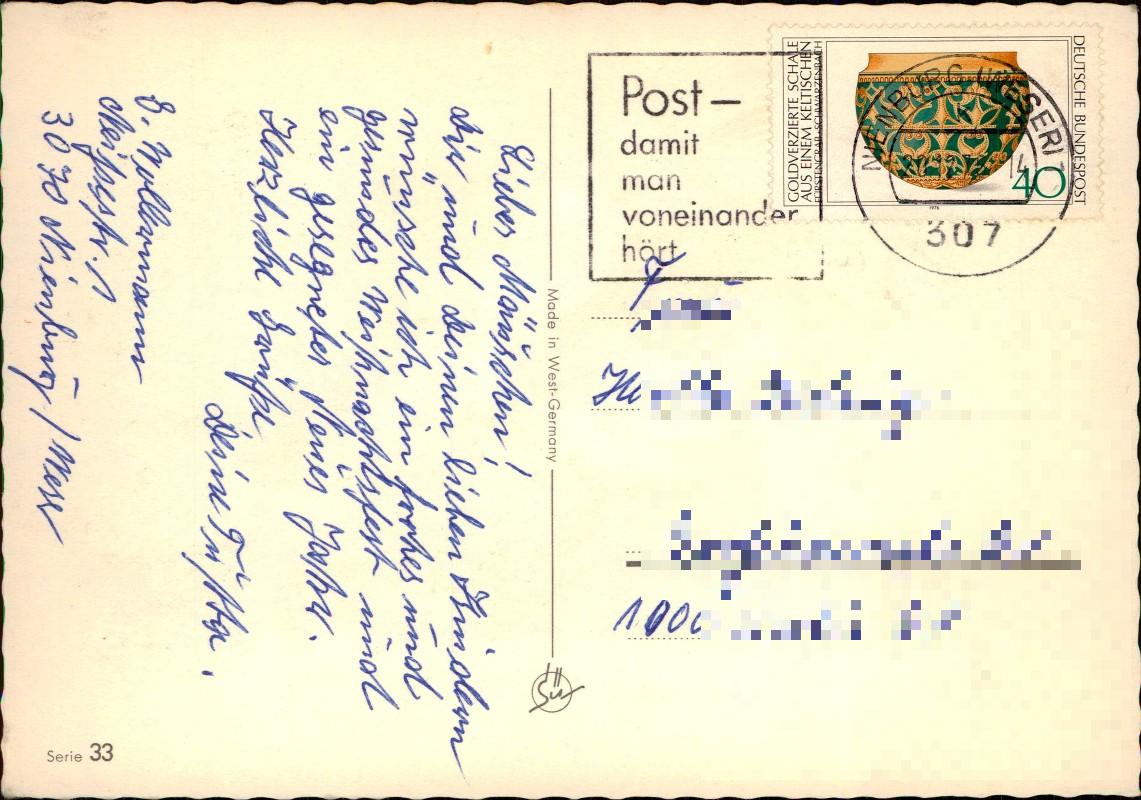 Post –
damit
man
voneinander
hört
GOLDVERZIERTE SCHALE
AUS EINEM KELTISCHEN
FÜRSTENGRAB · SCHWARZENBACH
DEUTSCHE BUNDESPOST
40
1976
NIENBURG (WESER) 1
307
Lieber Mänschen!
dir und deinen lieben Kindern
wünsche ich ein frohes und
gesundes Weihnachtsfest und
ein gesegnetes Neues Jahr.
Herzliche Grüße
Deine
3070 Nienburg / Weser
Made in West-Germany
1000
Serie 33